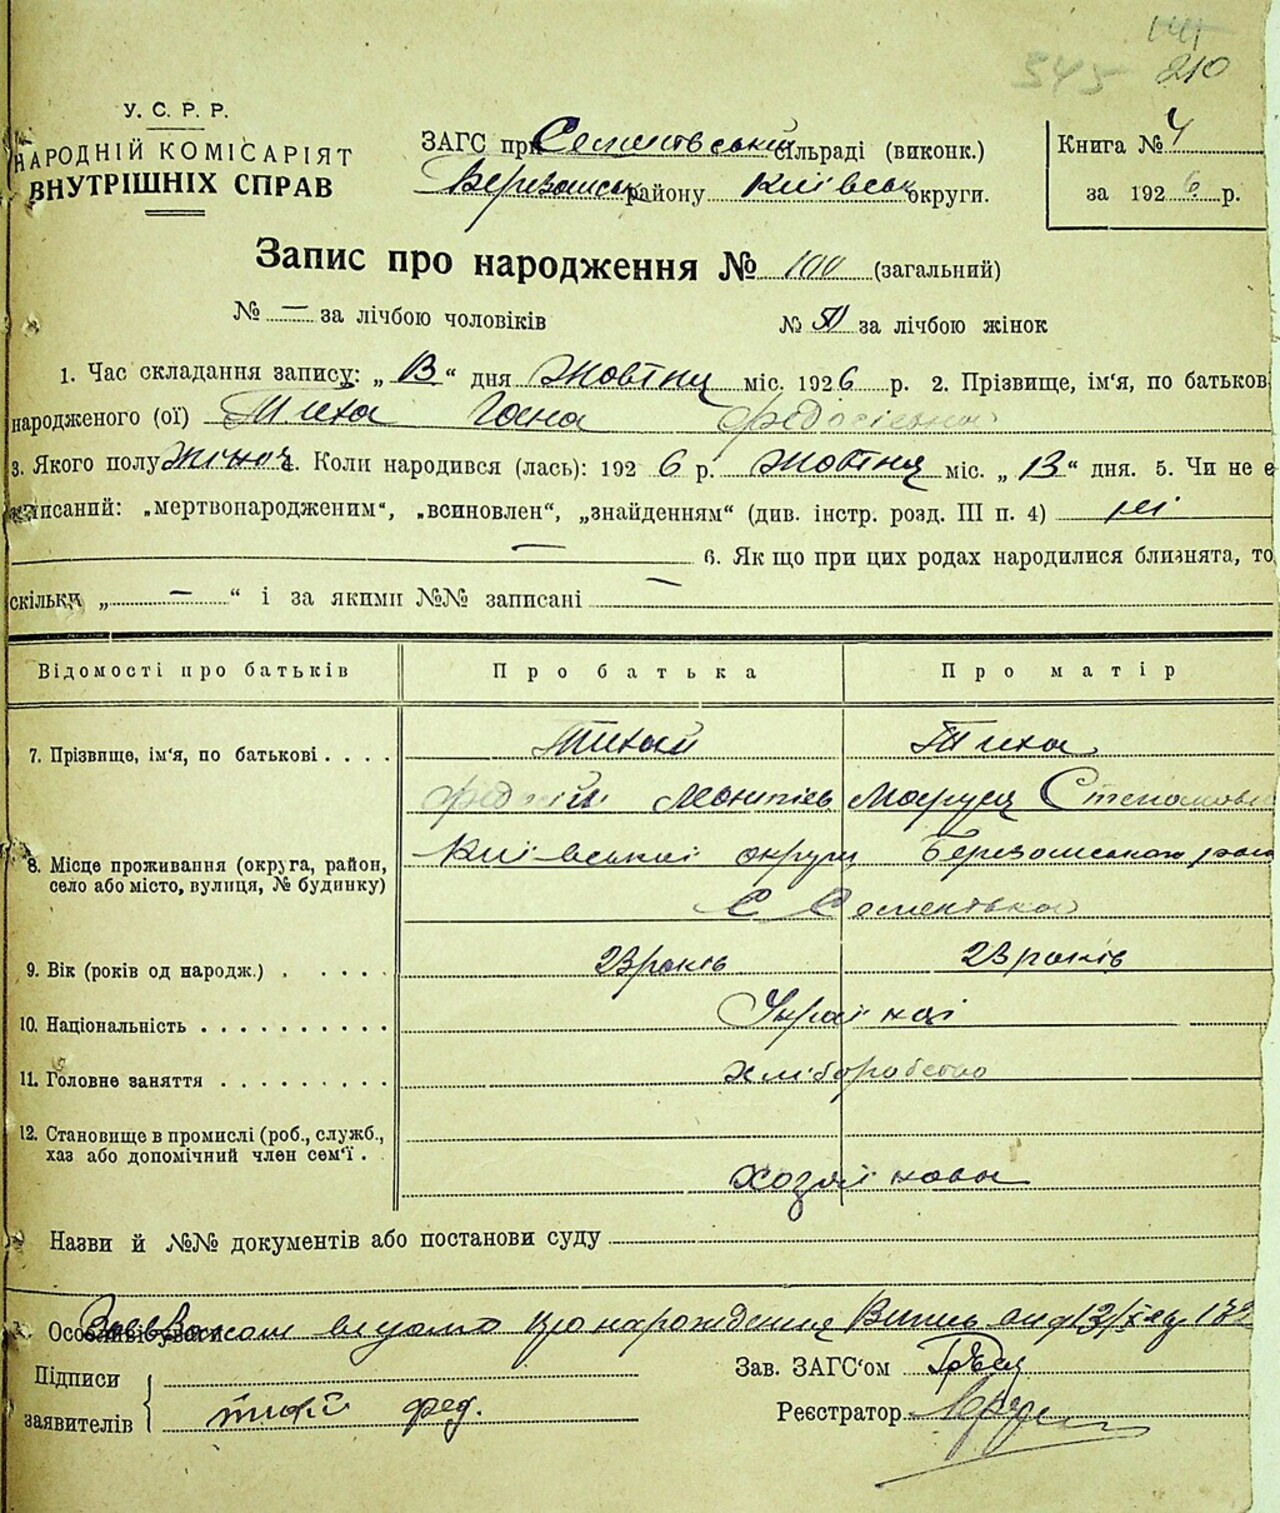 210
545
У. С. Р. Р.
НАРОДНІЙ КОМІСАРІЯТ
ВНУТРІШНІХ СПРАВ
ЗАГС при Сементвський сільраді (виконк.)
Березанськ району Київськ округи.
Книга № 4
за 1926 р.
Запис про народження № 100 (загальний)
№ — за лічбою чоловіків
№ 51 за лічбою жінок
1. Час складання запису: „13“ дня Жовтня міс. 1926 р. 2. Прізвище, ім'я, по батьков
народженого (ої) Тиха Гана Федосіевна
3. Якого полу Жіноч. Коли народився (лась): 1926 р. Жовтня міс. „13“ дня. 5. Чи не є
записаний: „мертвонародженим“, „всиновлен“, „знайденням“ (див. інстр. розд. III п. 4) ні
— 6. Як що при цих родах народилися близнята, то
скільки „ — “ і за якими №№ записані —
Відомості про батьків Про батька Про матір
7. Прізвище, ім'я, по батькові . . . . Тихий Тиха
Федосій Леонтіев Маруся Степанов
8. Місце проживання (округа, район, Київської округи Березанського рай
село або місто, вулиця, № будинку) С Сементвка
9. Вік (років од народж.) . . . . . 23 років 23 років
10. Національність . . . . . . . . . . Українці
11. Головне заняття . . . . . . . . . хліборобство
12. Становище в промислі (роб., служб.,
хаз або допомічний член сем'ї . Хозяїнова
Назви й №№ документів або постанови суду
Особливі уваги про народження
Підписи
заявителів тихий фед.
Зав. ЗАГС'ом
Реєстратор